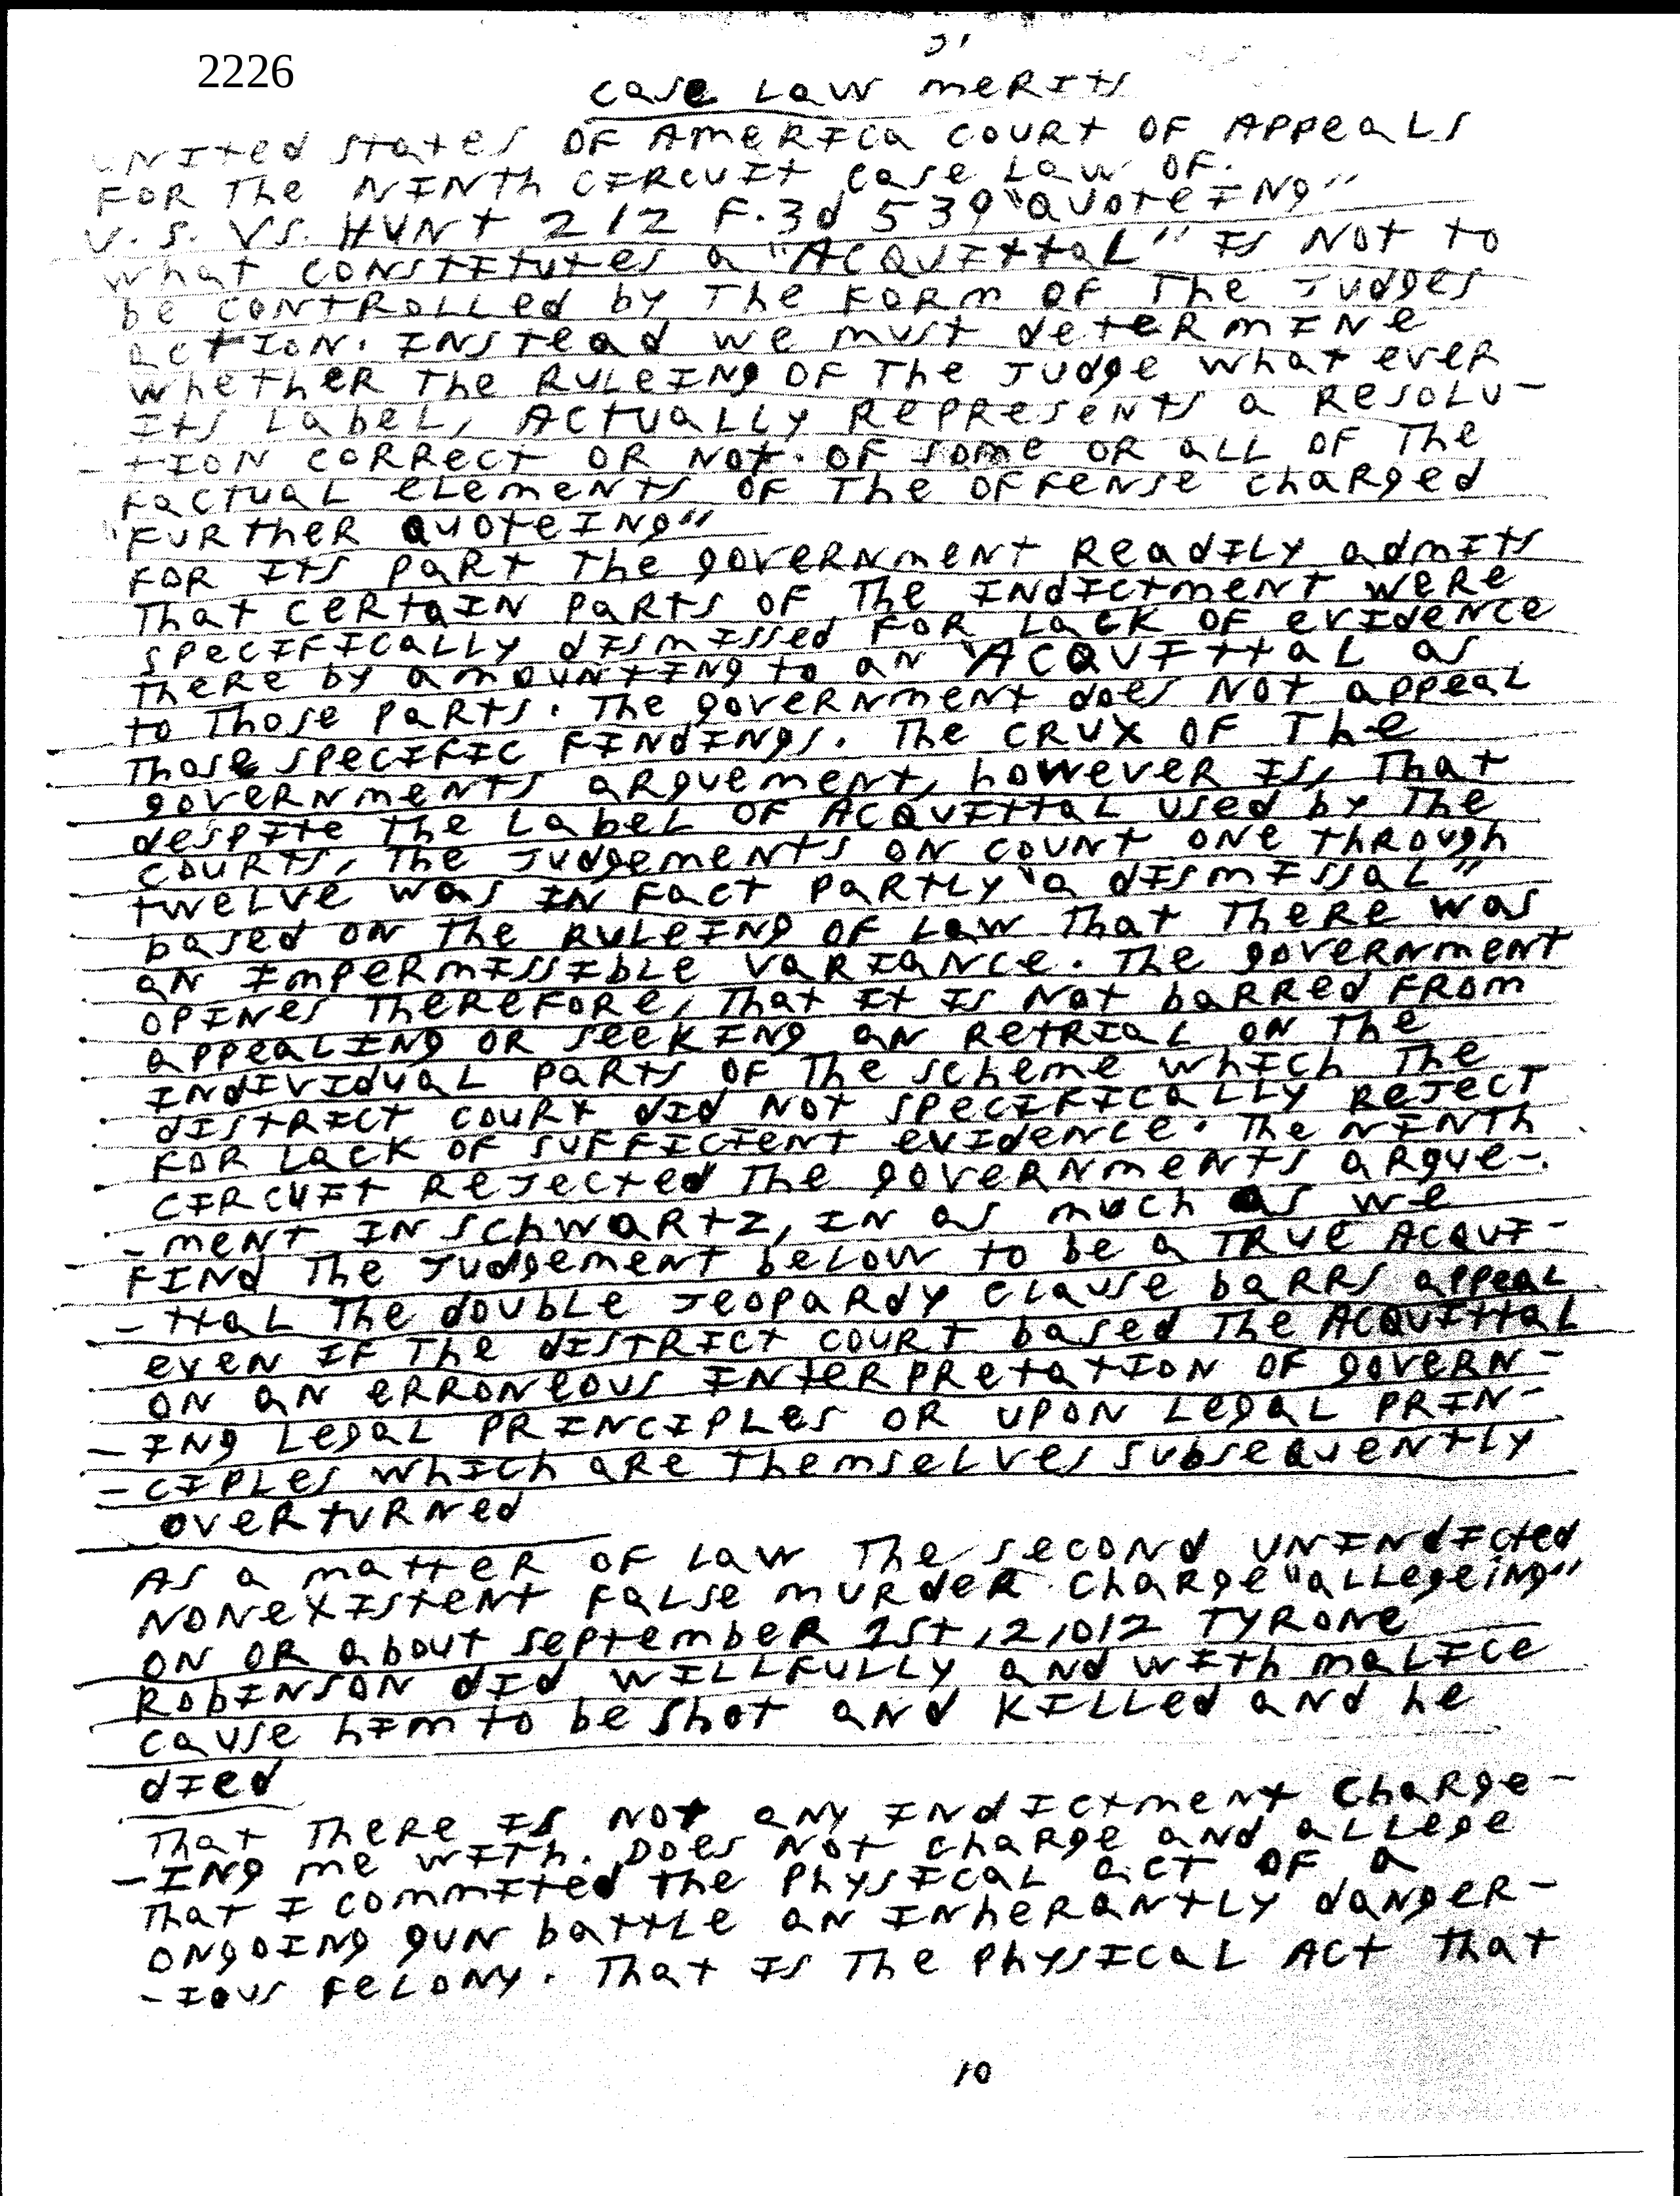 2226
case Law merits
United states of America court of Appeals
for the Ninth circuit case law of.
U.S. VS. HUNt 212 F.3d 539 "Quoteing"
what constitutes a "Acquittal" is not to
be controlled by the form of the Judges
action. Instead we must determine
whether the Ruleing of the Judge what ever
Its Label, Actually Represents a Resolu-
-tion correct or not. of some or all of the
factual elements of the offense charged
"further Quoteing"
for its part the government readily admits
that certain parts of the indictment were
specifically dismissed for lack of evidence
there by amounting to an "Acquittal as
to those parts. The government does not appeal
those specific findings. The crux of the
governments arguement, however is, that
despite the label of Acquittal used by the
courts, the Judgements on count one through
twelve was in fact partly "a dismissal"
based on the Ruleing of law that there was
an impermissible variance. The government
opines therefore, that it is not barred from
appealing or seeking an retrial on the
individual parts of the scheme which the
district court did not specifically reject
for lack of sufficient evidence. The Ninth
circuit rejected the governments argue-
-ment in Schwartz, in as much as we
find the Judgement below to be a true Acqui-
-ttal the double Jeopardy clause barrs appeal
even if the district court based the Acquittal
on an erroneous interpretation of govern-
-ing legal principles or upon legal prin-
-ciples which are themselves subsequently
overturned
As a matter of law the second unindicted
nonexistent false murder charge "allegeing"
on or about September 1st, 2,012 Tyrone
Robinson did willfully and with malice
cause him to be shot and killed and he
died
That there is not any indictment charge-
-ing me with. Does not charge and allege
that I commited the physical act of a
ongoing gun battle an inherantly danger-
-ious felony. That is the physical Act that
10